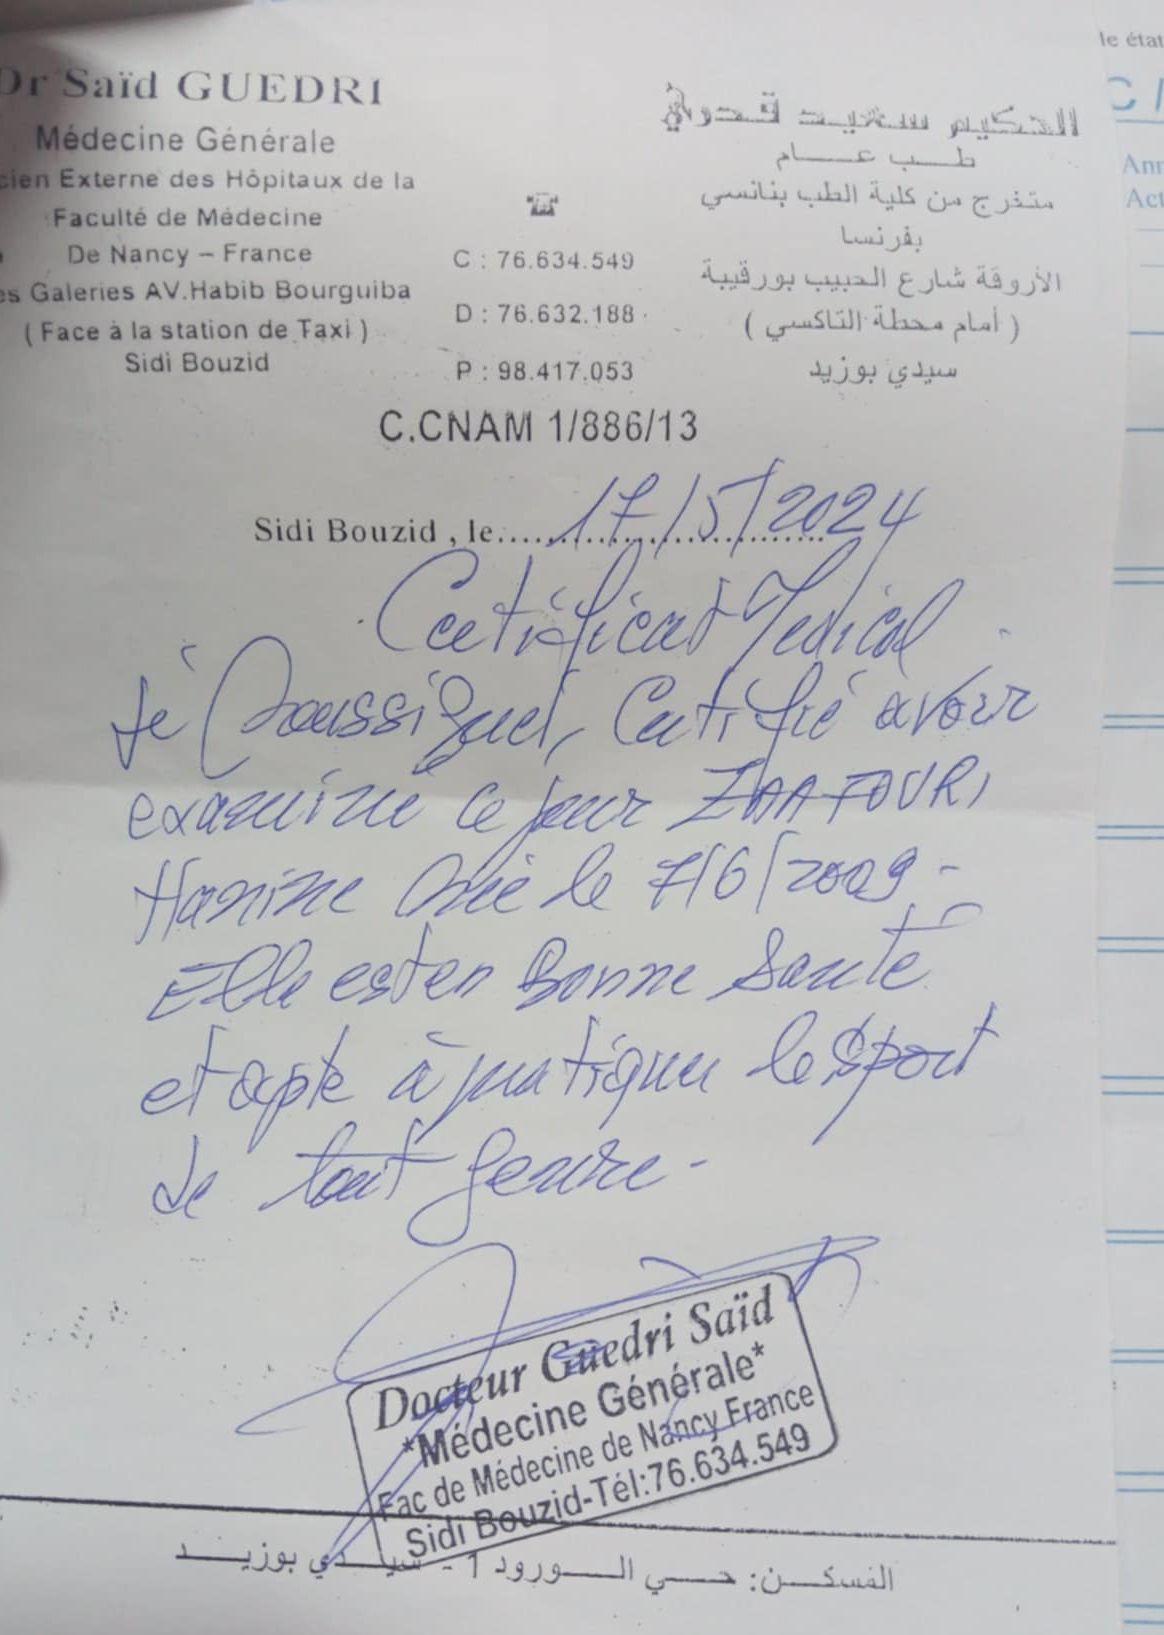 Dr Saïd GUEDRI
Médecine Générale
cien Externe des Hôpitaux de la
Faculté de Médecine
De Nancy – France
es Galeries AV.Habib Bourguiba
( Face à la station de Taxi )
Sidi Bouzid
C : 76.634.549
D : 76.632.188
P : 98.417.053
الحكيم سعيد قدري
طب عام
متخرج من كلية الطب بنانسي
بفرنسا
الأروقة شارع الحبيب بورقيبة
( أمام محطة التاكسي )
سيدي بوزيد
C.CNAM 1/886/13
Sidi Bouzid , le 17/5/2024
Certificat Medical
Je Soussigné, Certifié avoir
examiné ce jour ZAAFOURI
Hanine Née le 7/6/2009 -
Elle est en Bonne Santé
et apte à pratiquer le sport
de tout genre -
Docteur Guedri Saïd
*Médecine Générale*
Fac de Médecine de Nancy France
Sidi Bouzid-Tél:76.634.549
المسكن: حي الورود 1 - سيدي بوزيد
le état
Ann
Act